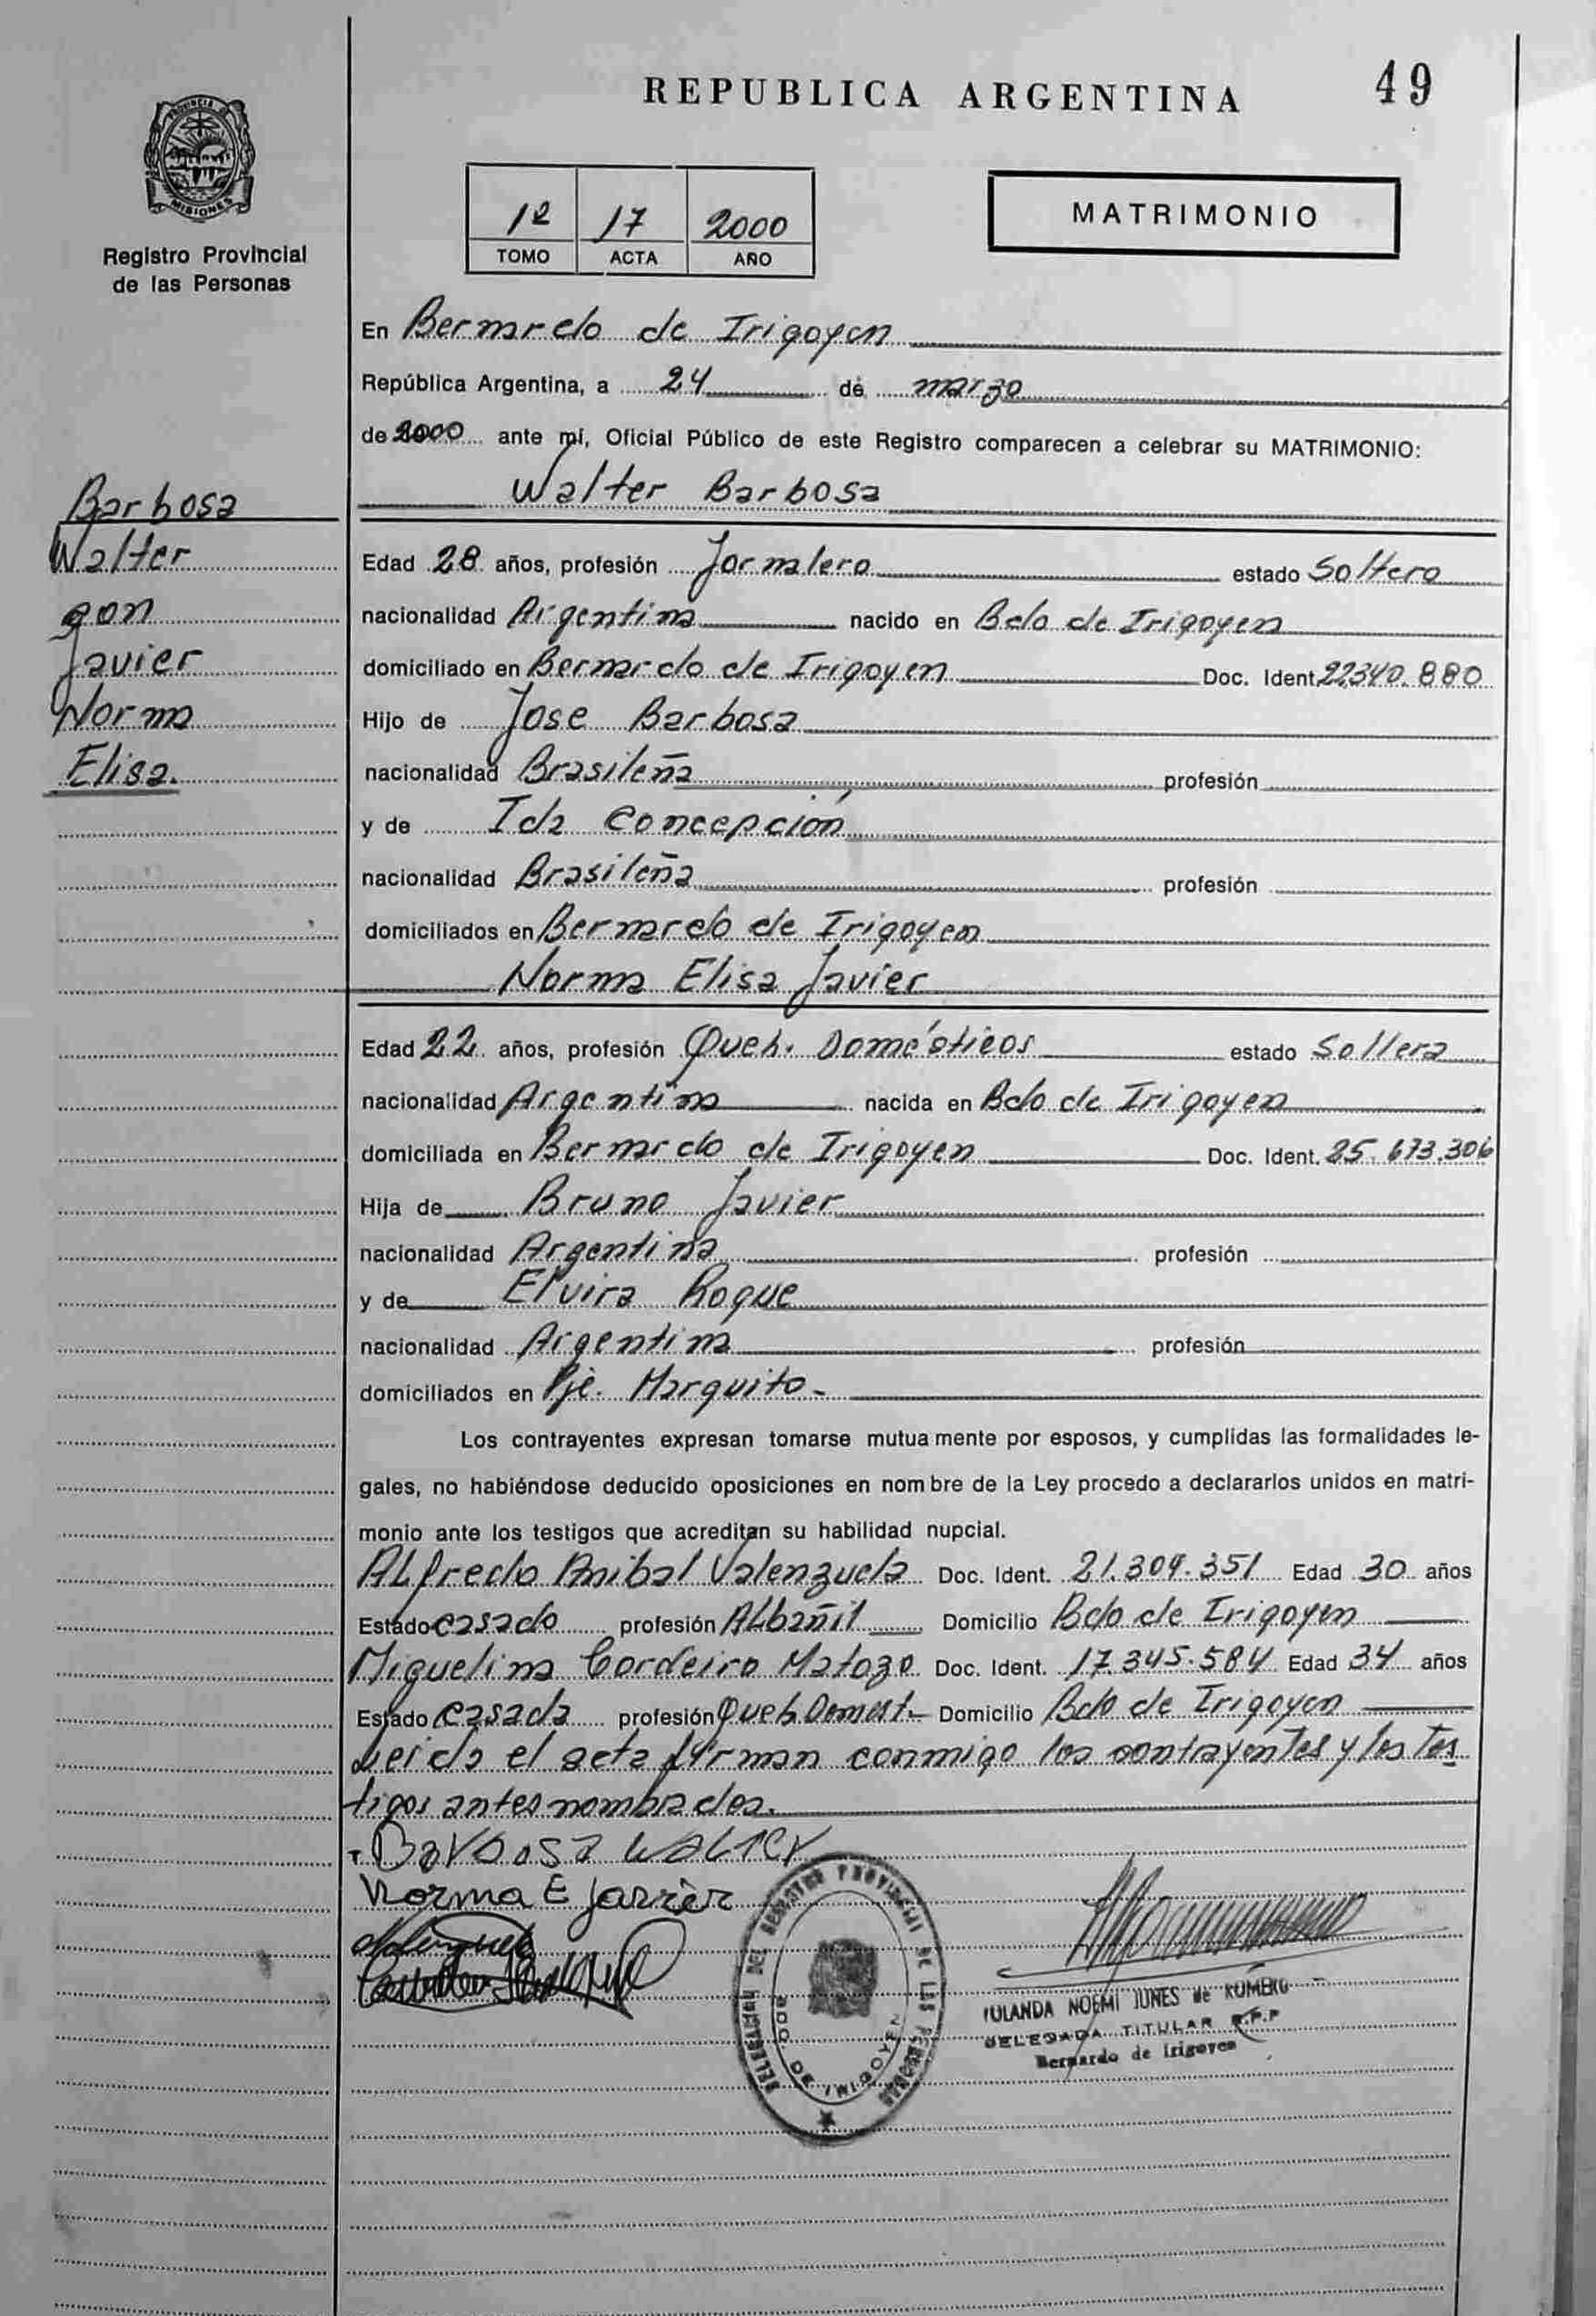 REPUBLICA ARGENTINA
49
PROVINCIA DE
MISIONES
Registro Provincial
de las Personas
1º 17 2000
TOMO ACTA AÑO
MATRIMONIO
En Bernardo de Irigoyen
República Argentina, a 24 de marzo
de 2000 ante mí, Oficial Público de este Registro comparecen a celebrar su MATRIMONIO:
Walter Barbosa
Barbosa
Walter
con
Javier
Norma
Elisa.
Edad 28 años, profesión Jornalero estado Soltero
nacionalidad Argentina nacido en Bdo de Irigoyen
domiciliado en Bernardo de Irigoyen Doc. Ident. 22.340.880
Hijo de Jose Barbosa
nacionalidad Brasileña profesión
y de Ida Concepción
nacionalidad Brasileña profesión
domiciliados en Bernardo de Irigoyen
Norma Elisa Javier
Edad 22 años, profesión Queh. Domésticos estado Soltera
nacionalidad Argentina nacida en Bdo de Irigoyen
domiciliada en Bernardo de Irigoyen Doc. Ident. 25.673.306
Hija de Bruno Javier
nacionalidad Argentina profesión
y de Elvira Roque
nacionalidad Argentina profesión
domiciliados en Pje. Marquito-
Los contrayentes expresan tomarse mutuamente por esposos, y cumplidas las formalidades le-
gales, no habiéndose deducido oposiciones en nombre de la Ley procedo a declararlos unidos en matri-
monio ante los testigos que acreditan su habilidad nupcial.
ALfredo Anibal Valenzuela Doc. Ident. 21.309.351 Edad 30 años
Estado casado profesión ALbañil Domicilio Bdo de Irigoyen
Miguelina Cordeiro Matozo Doc. Ident. 17.345.584 Edad 34 años
Estado Casada profesión Queh. Domest. Domicilio Bdo de Irigoyen
Leida el acta firman conmigo los contrayentes y los tes
tigos antes nombrados.
Barbosa Walter
Norma E Javier
DELEGACION DEL REGISTRO PROVINCIAL DE LAS PERSONAS
BDO DE IRIGOYEN
YOLANDA NOEMI JUNES de ROMERO
DELEGADA TITULAR R.P.P
Bernardo de Irigoyen